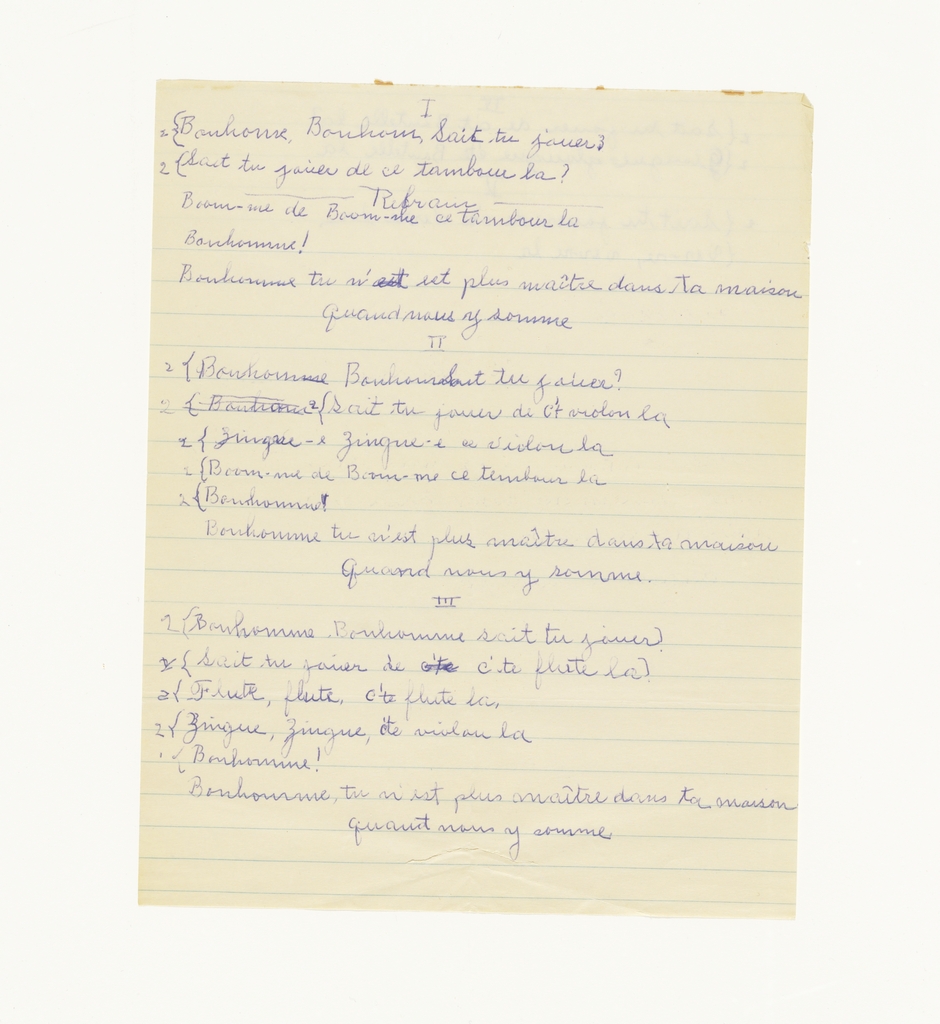 I
2 { Bonhome, Bonhom, Sait tu jouer?
2 { Sait tu jouer de ce tambour la?
Refrain
Boom-me de Boom-me ce tambour la
Bonhomme!
Bonhomme tu n'est est plus maître dans ta maison
Quand nous y somme
II
2 { Bonhomme Bonhom Sait tu jouer?
2 { Bonhome 2 { Sait tu jouer de c't violon la
2 { Zingue-e Zingue-e ce violon la
2 { Boom-me de Boom-me ce tembour la
2 { Bonhomme!
Bonhomme tu n'est plus maître dans ta maison
Quand nous y somme.
III
2 { Bonhomme Bonhomme sait tu jouer?
2 { Sait tu jouer de c'te c'te flute la?
2 { Flute, flute, c'te flute la,
2 { Zingue, Zingue, c'te violon la
{ Bonhomme!
Bonhomme, tu n'est plus maître dans ta maison
Quand nous y somme